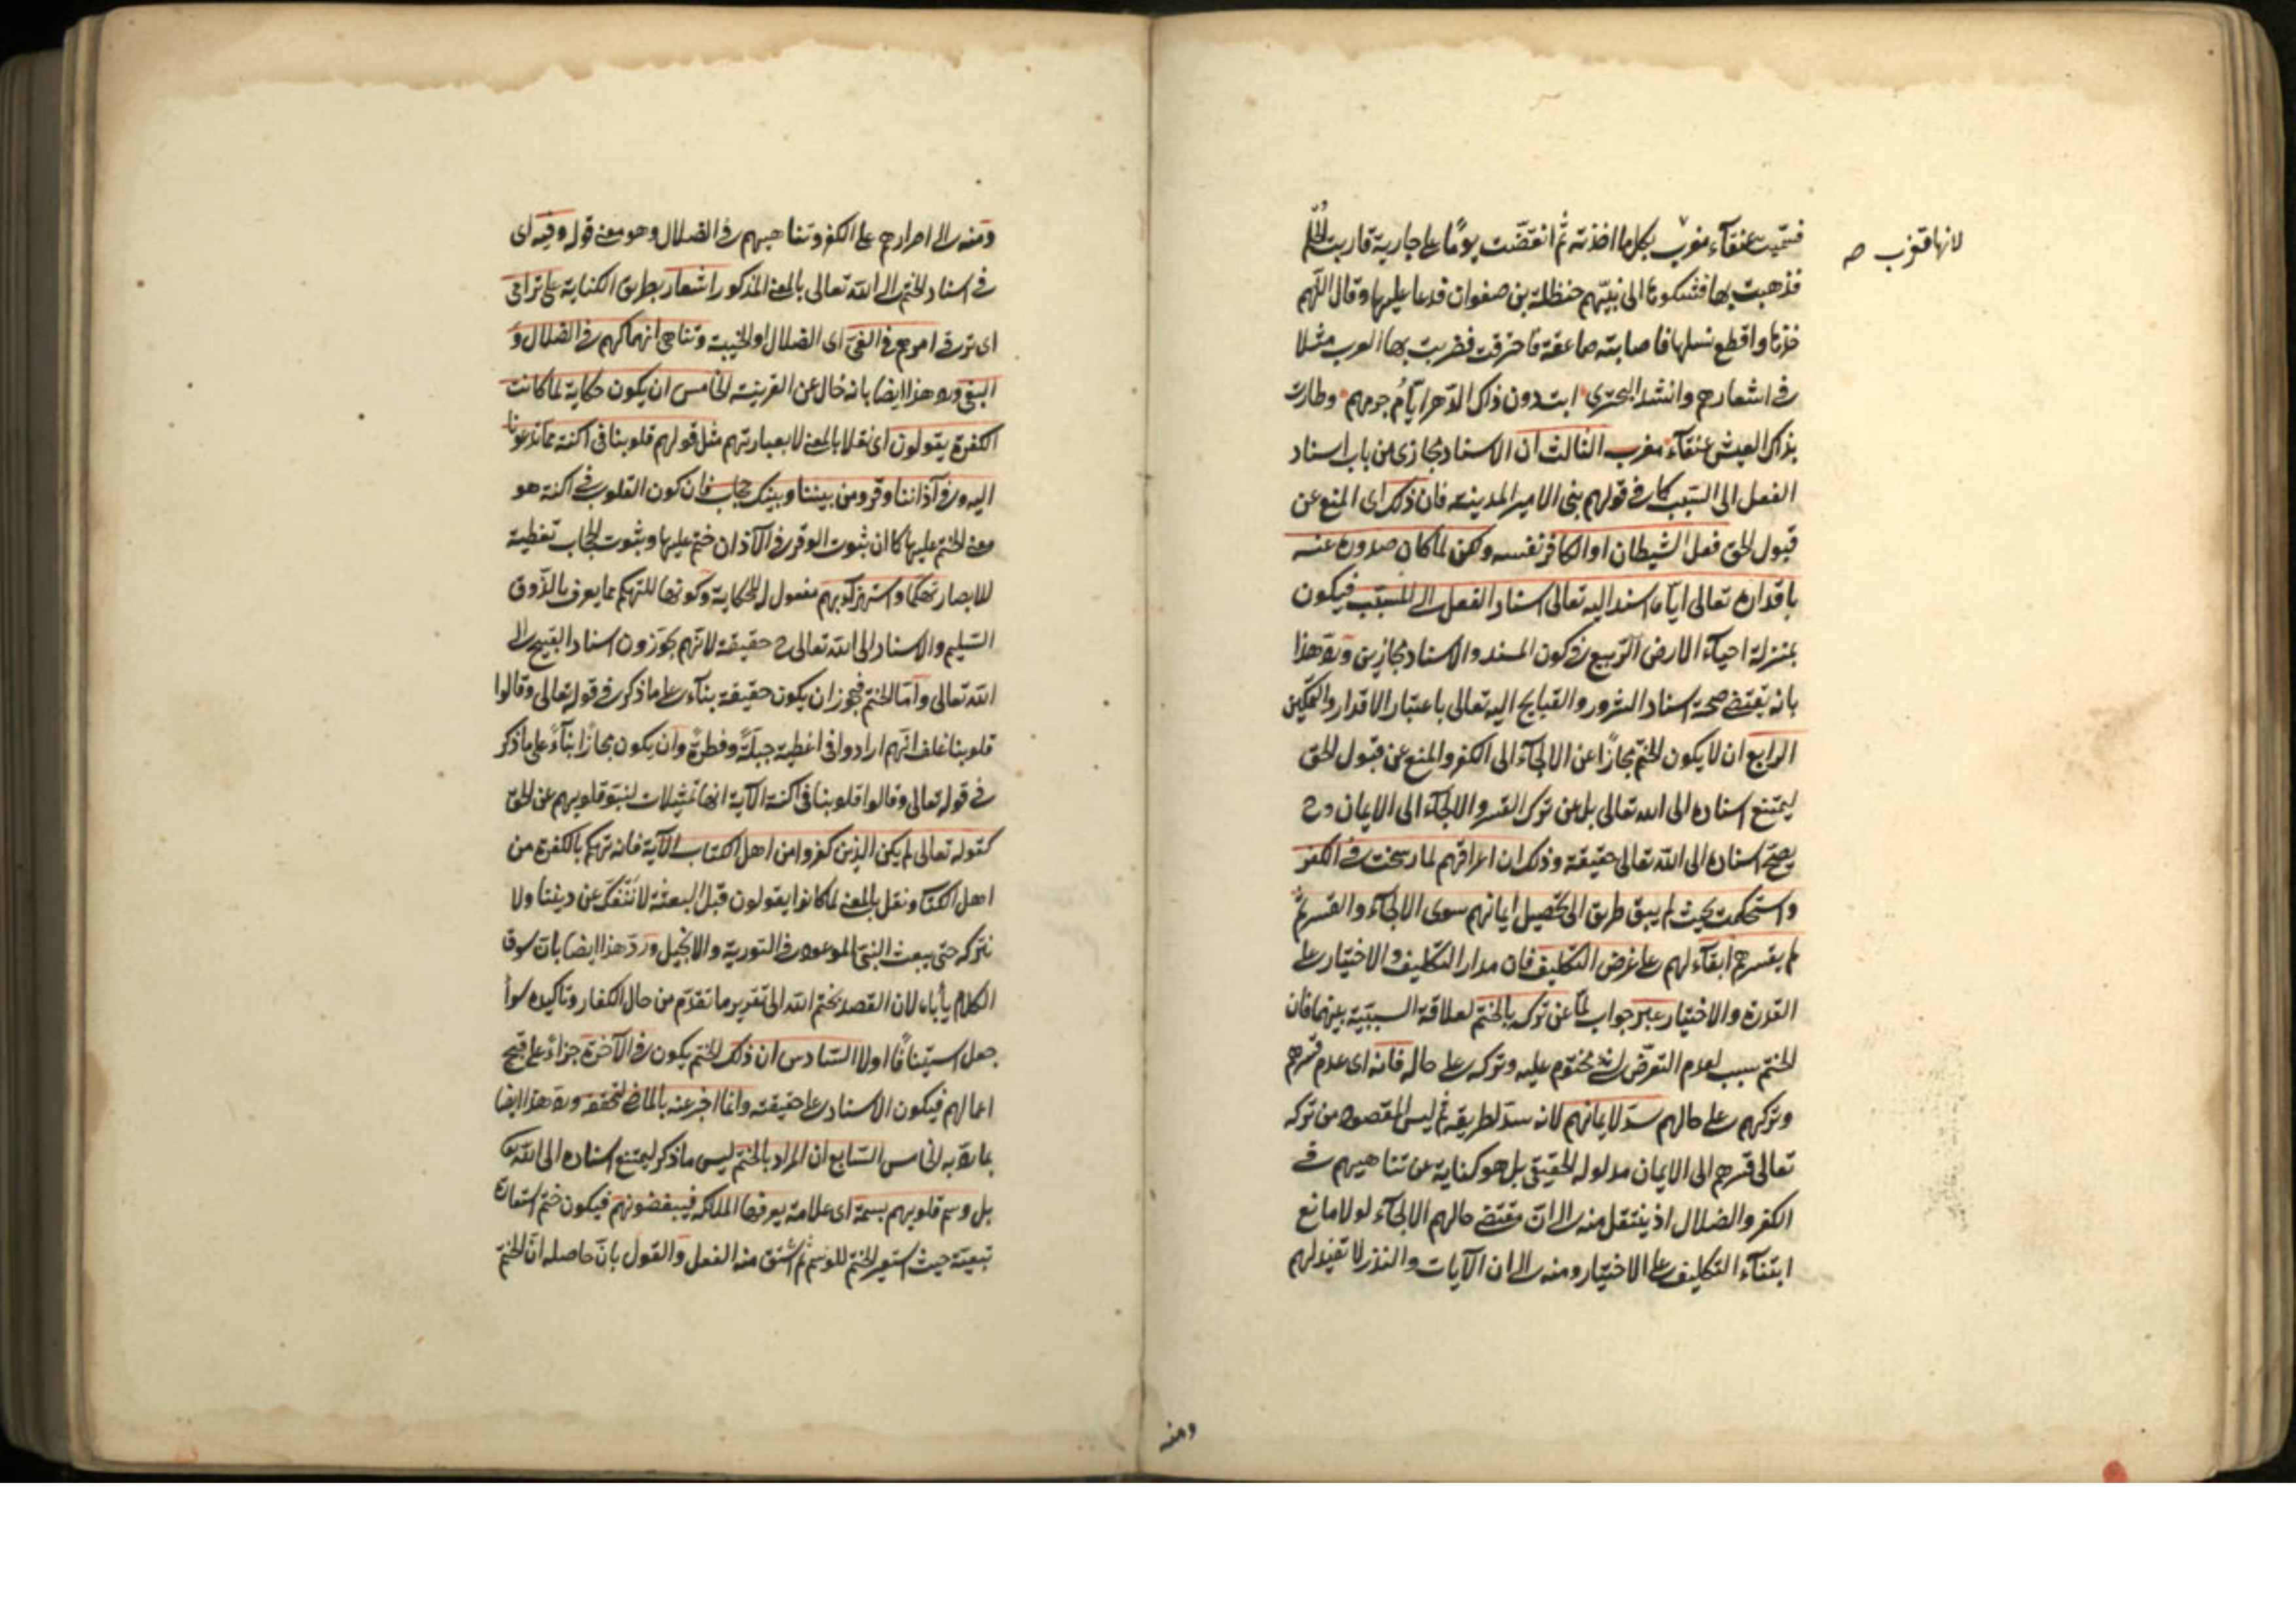 فسميت عنقاء مغرب بكل ما اخذته ثم انقضت يومًا على جارية قاربت الحلم
لانها تغرب صح
فذهبت بها فشكوها الى نبيّهم حنظلة بن صفوان فدعا عليها وقال اللهم
خذها واقطع نسلها فاصابته صاعقة فاحترقت فضربت بها العرب مثلا
في اشعارهم وانشد البحترى ذلك الدهر ايام وطارت
بذاك العيش عنقآء مغرب الثالث ان الاسناد مجازى من باب اسناد
الفعل الى السبب كما في قولهم بنى الامير المدينة فان ذلك اى المنع عن
قبول الحق فعل الشيطان او الكافر نفسه ولكن لما كان صدوره عنه
باقداره تعالى اياه اسند اليه تعالى اسناد الفعل الى المسبّب فيكون
بمنزلة احياء الارض الربيع في كون المسند والاسناد مجازين ورد هذا
بانه يقتضي صحة اسناد الشرور والقبايح اليه تعالى باعتبار الاقدار والتمكين
الرابع ان لا يكون الختم مجازًا عن الالجآء الى الكفر والمنع عن قبول الحق
ليمتنع اسناده الى الله تعالى بل عن ترك القسر والالجآء الى الايمان وح
يصحّ اسناده الى الله تعالى حقيقة وذلك ان اعراقهم لما رسخت في الكفر
واستحكمت بحيث لم يبق طريق الى تحصيل ايمانهم سوى الالجآء والقسر ثم
لم يقسرهم ابقآء لهم على غرض التكليف فان مدار التكليف والاختيار على
القدرة والاختيار عبر جواب لما عن تركه بالختم لعلاقة السببية بينهما فان
الختم سبب لعدم التعرّض لشئ مختوم عليه وتركه على حاله فانه اى عدم قسرهم
وتركهم على حالهم سدّ لايمانهم لانه سدّ لطريقه ثم ليس المقصود من تركه
تعالى قسرهم الى الايمان مدلوله الحقيقى بل هو كناية عن تناهيهم في
الكفر والضلال اذ ينتقل منه الى ان مقتضى حالهم الالجآء لولا مانع
ابتنآء التكليف على الاختيار ومنه الى ان الآيات والنذر لا تفيد لهم
ومنه
ومنه الى اصرارهم على الكفر وتناهيهم في الضلال وهو معنى قوله وفيه اى
في اسناد الختم الى الله تعالى بالمعنى المذكور اشعار بطريق الكناية على ترامى
اى ترقى امرهم في الغيّ اى الضلال او الخيبة وتناهى انهماكهم في الضلال و
البغي ورد هذا ايضا بانه خال عن القرينة الخامس ان يكون حكاية لما كانت
الكفرة يقولون اى نقلا بالمعنى لا بعبارتهم مثل قولهم قلوبنا فى اكنة مما تدعونا
اليه وفي آذاننا وقر ومن بيننا وبينك حجاب فان كون القلوب في اكنة هو
معنى الختم عليها كما ان ثبوت الوقر في الآذان ختم عليها وثبوت الحجاب تغطية
للابصار تهكما واستهزآء بهم مفعول له للحكاية وكونها للتهكم مما يعرف بالذوق
السّليم والاسناد الى الله تعالى ح حقيقة لانهم يجوّزون اسناد القبيح الى
الله تعالى وامّا الختم فيجوز ان يكون حقيقة بناء على ما ذكر في قوله تعالى وقالوا
قلوبنا غلف انهم ارادوا فى اغطية جبلّةً وفطرةً وان يكون مجازا بناءً على ما ذكر
في قوله تعالى وقالوا قلوبنا فى اكنة الآية انها تمثيلات لنبو قلوبهم عن الحق
كقوله تعالى لم يكن الذين كفروا من اهل الكتاب الآية فانه تهكم بالكفرة من
اهل الكتاب ونقل بالمعنى لما كانوا يقولون قبل البعثة لا ننفكّ عن ديننا ولا
نتركه حتى يبعث النبى الموعود في التورية والانجيل وردّ هذا ايضا بان سوق
الكلام يأباه لان القصد بختم الله الى تقرير ما تقدّم من حال الكفار وتاكيده سوآء
جعل استينافًا اولا السّادس ان ذلك الختم يكون في الآخرة جزاءً على قبح
اعمالهم فيكون الاسناد على حقيقته وانما اخبر عنه بالماضى لتحققه ورد هذا ايضا
بما رد به الخامس السّابع ان المراد بالختم ليس ما ذكر ليمتنع اسناده الى الله تع
بل وسم قلوبهم بسمة اى علامة يعرفها الملائكة فيبغضونهم فيكون ختم استعارة
تبعيّة حيث استعير الختم للوسم ثم اشتق منه الفعل والقول بانّ حاصله انّ الختم